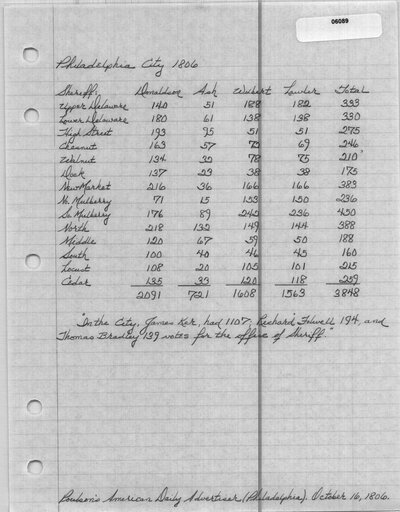 06089
Philadelphia City 1806
Sheriff: Donaldson Ash Weibert Lawler Total
Upper Delaware 140 51 188 182 333
Lower Delaware 180 61 138 138 330
High Street 193 95 51 51 275
Chesnut 163 57 70 69 246
Walnut 134 32 78 75 210
Dock 137 23 38 38 175
New Market 216 36 166 166 383
No. Mulberry 71 15 153 150 236
So. Mulberry 176 89 240 236 450
North 218 132 149 144 388
Middle 120 67 59 50 188
South 100 40 46 45 160
Locust 108 20 105 101 215
Cedar 135 33 120 118 259
2091 721 1608 1563 3848
"In the City, James Ker, had 1107, Richard Folwell 194, and
Thomas Bradley 139 votes for the office of Sheriff."
Poulson's American Daily Advertiser (Philadelphia). October 16, 1806.